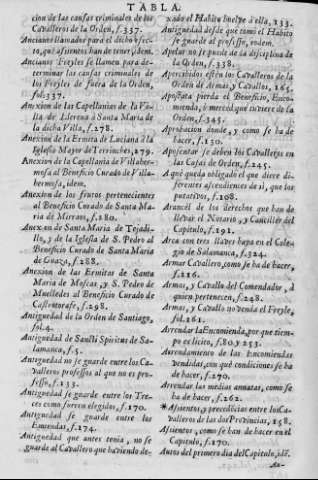 TABLA
cion de las causas criminales de los
Cavalleros de la Orden, f.337.
Ancianos llamados para el dicho efec-
to, què assientos han de tener, idem.
Ancianos Freyles se llamen para de-
terminar las causas criminales de
los Freyles de fuera de la Orden,
fol.337.
Anexion de las Capellanias de la Vi-
lla de Llerena à Santa Maria de
la dicha Villa, f.278.
Anexion de la Ermita de Luciana à la
Iglesia Mayor de Terrinches, 279.
Anexion de la Capellania de Villaher-
mosa al Beneficio Curado de Villa-
hermosa, idem.
Anexion de los frutos pertenecientes
al Beneficio Curado de Santa Ma-
ria de Mirans, f.280.
Anexion de Santa Maria de Tejadi-
llo, y de la Iglesia de S. Pedro al
Beneficio Curado de Santa Maria
de Guaza, f.288.
Anexion de las Ermitas de Santa
Maria de Moscas, y S. Pedro de
Muelledes al Beneficio Curado de
Castrotorafe, f.298.
Antiguedad de la Orden de Santiago,
fol.4.
Antiguedad de Sancti Spiritus de Sa-
lamanca, f.5.
Antiguedad no se guarde entre los Ca-
valleros professos al que no es pro-
fesso, f.133.
Antiguedad se guarde entre los Tre-
ces como fueren elegidos, f.170.
Antiguedad se guarde entre los
Emiendas, f.174.
Antiguedad que antes tenia, no se
guarde al Cavallero que haviendo de-
xado el Habito buelve à ella, 133.
Antiguedad desde que tomò el Habito
se guarde el professo, eodem.
Apelar no se puede de la disciplina de
la Orden, f.338.
Apercibidos estèn los Cavalleros de la
Orden de Armas, y Cavallos, 165.
Apostata pierda el Beneficio, Enco-
mienda, ò merced que tuviere de la
Orden, f.345.
Aprobacion donde, y como se ha de
hacer, f.130.
Aposentar se deben los Cavalleros en
las Casas de Orden, f.245.
A què queda obligado el que diere di-
ferentes ascendientes de si, que los
putativos, f.108.
Arancel de los derechos que han de
llevar el Notario, y Canciller del
Capitulo, f.191.
Arca con tres llaves haya en el Cole-
gio de Salamanca, f.324.
Armar Cavallero, como se ha de hacer,
f.116.
Armas, y Cavallo del Comendador, à
quien pertenecen, f.248.
Armas, y Cavallo no venda el Freyle,
fol.261.
Arrendar la Encomienda, por que tiem-
po es licito, f.80, y 253.
Arrendamiento de las Encomiendas
vendidas, con què condiciones se ha
de hacer, f.270.
Arrendar las medias annatas, como se
ha de hacer, f.262.
*Assientos, y precedencias entre los Ca-
valleros de las dos Provincias, 158.
Assientos, como se han de hacer en el
Capitulo, f.170.
Autos del primero dia del Capitulo, idẽ.
Au-